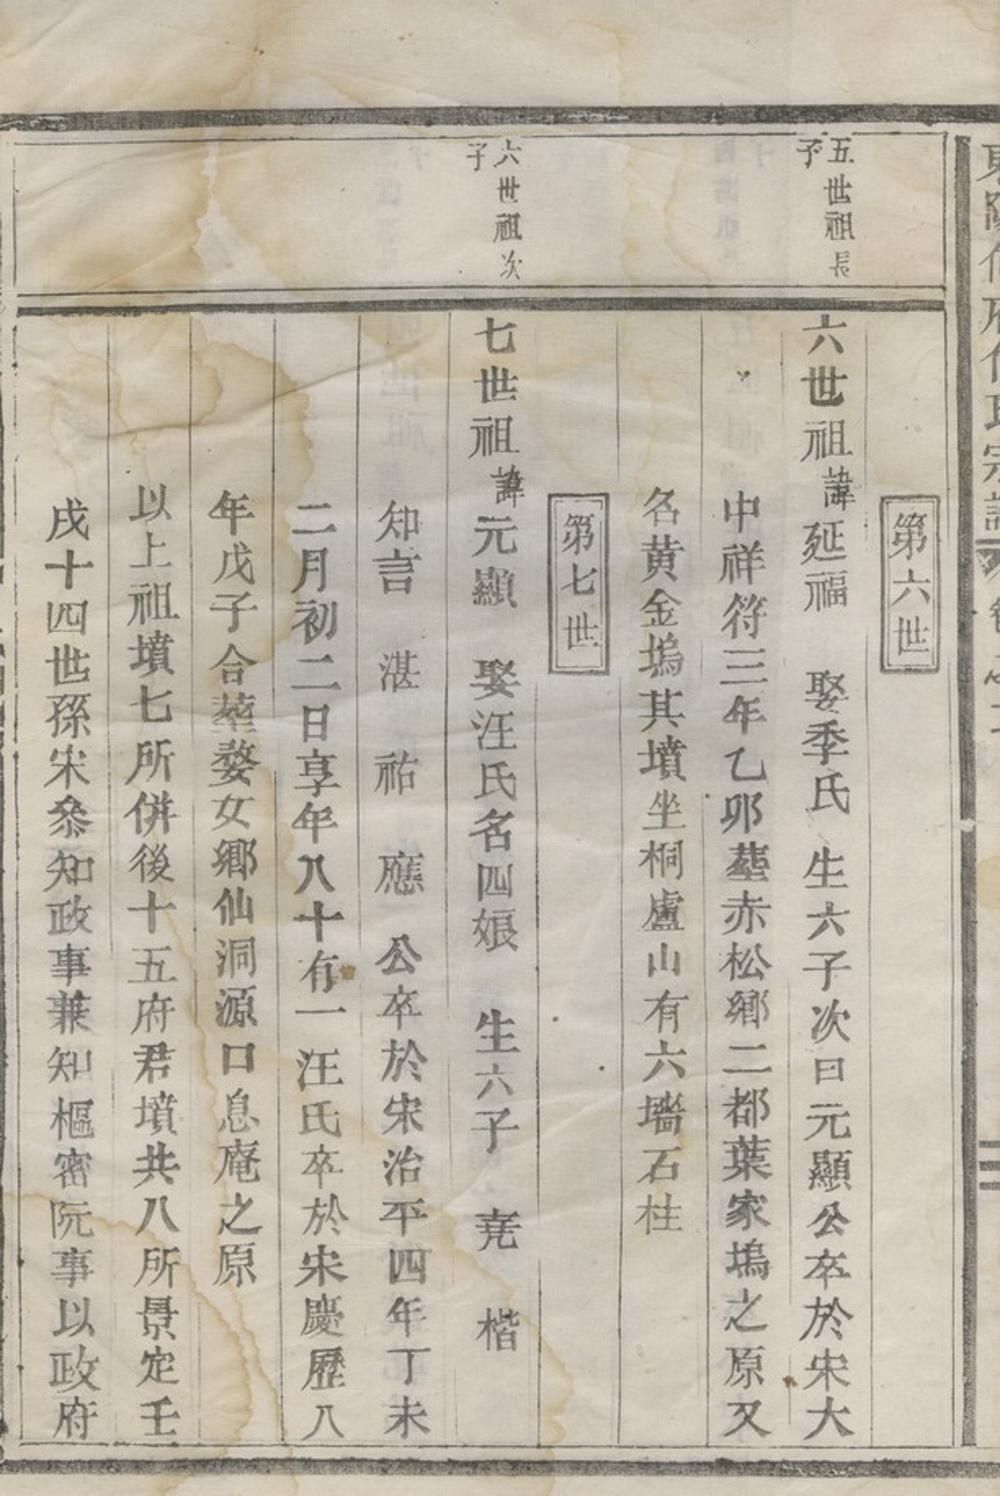 第六世
五世祖長子
六世祖諱延福　娶季氏　生六子次曰元顯公卒於宋大
中祥符三年乙卯塟赤松鄉二都葉家塢之原又
名黃金塢其墳坐桐廬山有六墻石柱
第七世
六世祖次子
七世祖諱元顯　娶汪氏名四娘　生六子　堯　楷
知言　湛　祐　應　公卒於宋治平四年丁未
二月初二日享年八十有一汪氏卒於宋慶歷八
年戊子合塟婺女鄉仙洞源口息庵之原
以上祖墳七所併後十五府君墳共八所景定壬
戌十四世孫宋叅知政事兼知樞密阮事以政府